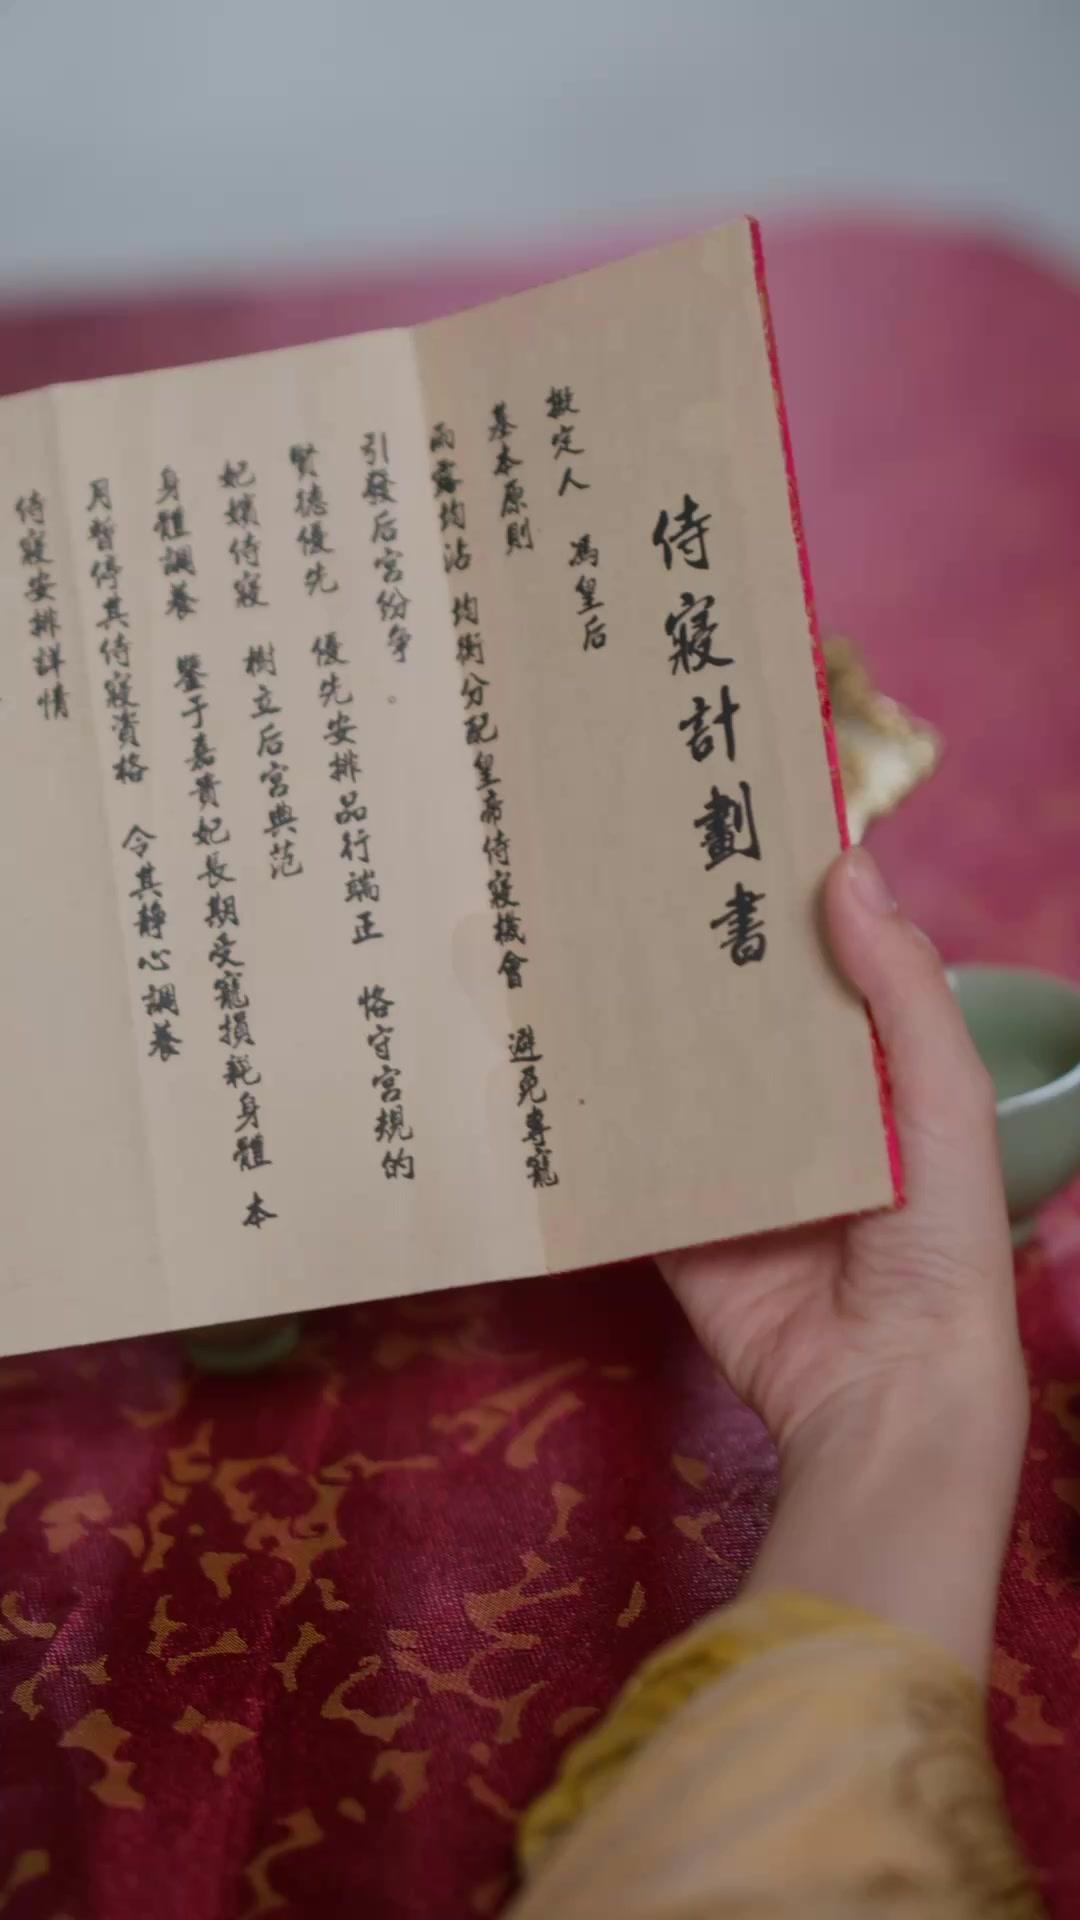 侍寢計劃書
擬定人 馮皇后
基本原則
雨露均沾 均衡分配皇帝侍寢機會 避免專寵
引發后宮紛爭。
賢德優先 優先安排品行端正 恪守宮規的
妃嬪侍寢 樹立后宮典范
身體調養 鑒于嘉貴妃長期受寵損耗身體 本
月暫停其侍寢資格 令其靜心調養
侍寢安排詳情